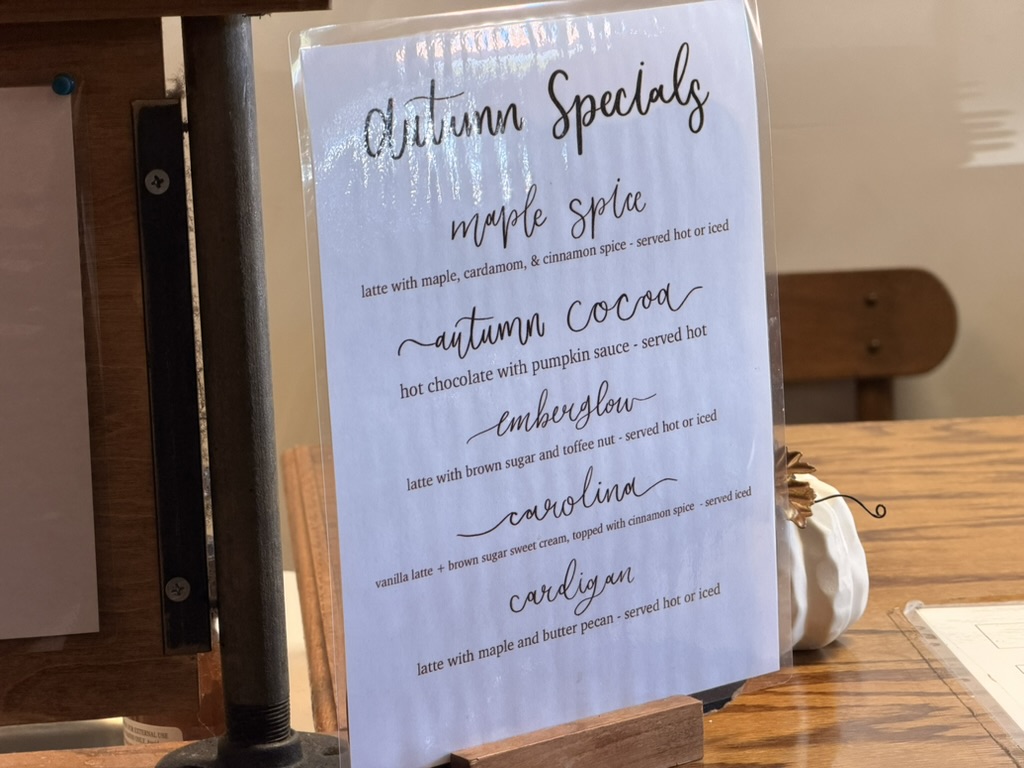 Autumn Specials
maple spice
latte with maple, cardamom, & cinnamon spice - served hot or iced
autumn cocoa
hot chocolate with pumpkin sauce - served hot
emberglow
latte with brown sugar and toffee nut - served hot or iced
carolina
vanilla latte + brown sugar sweet cream, topped with cinnamon spice - served iced
cardigan
latte with maple and butter pecan - served hot or iced